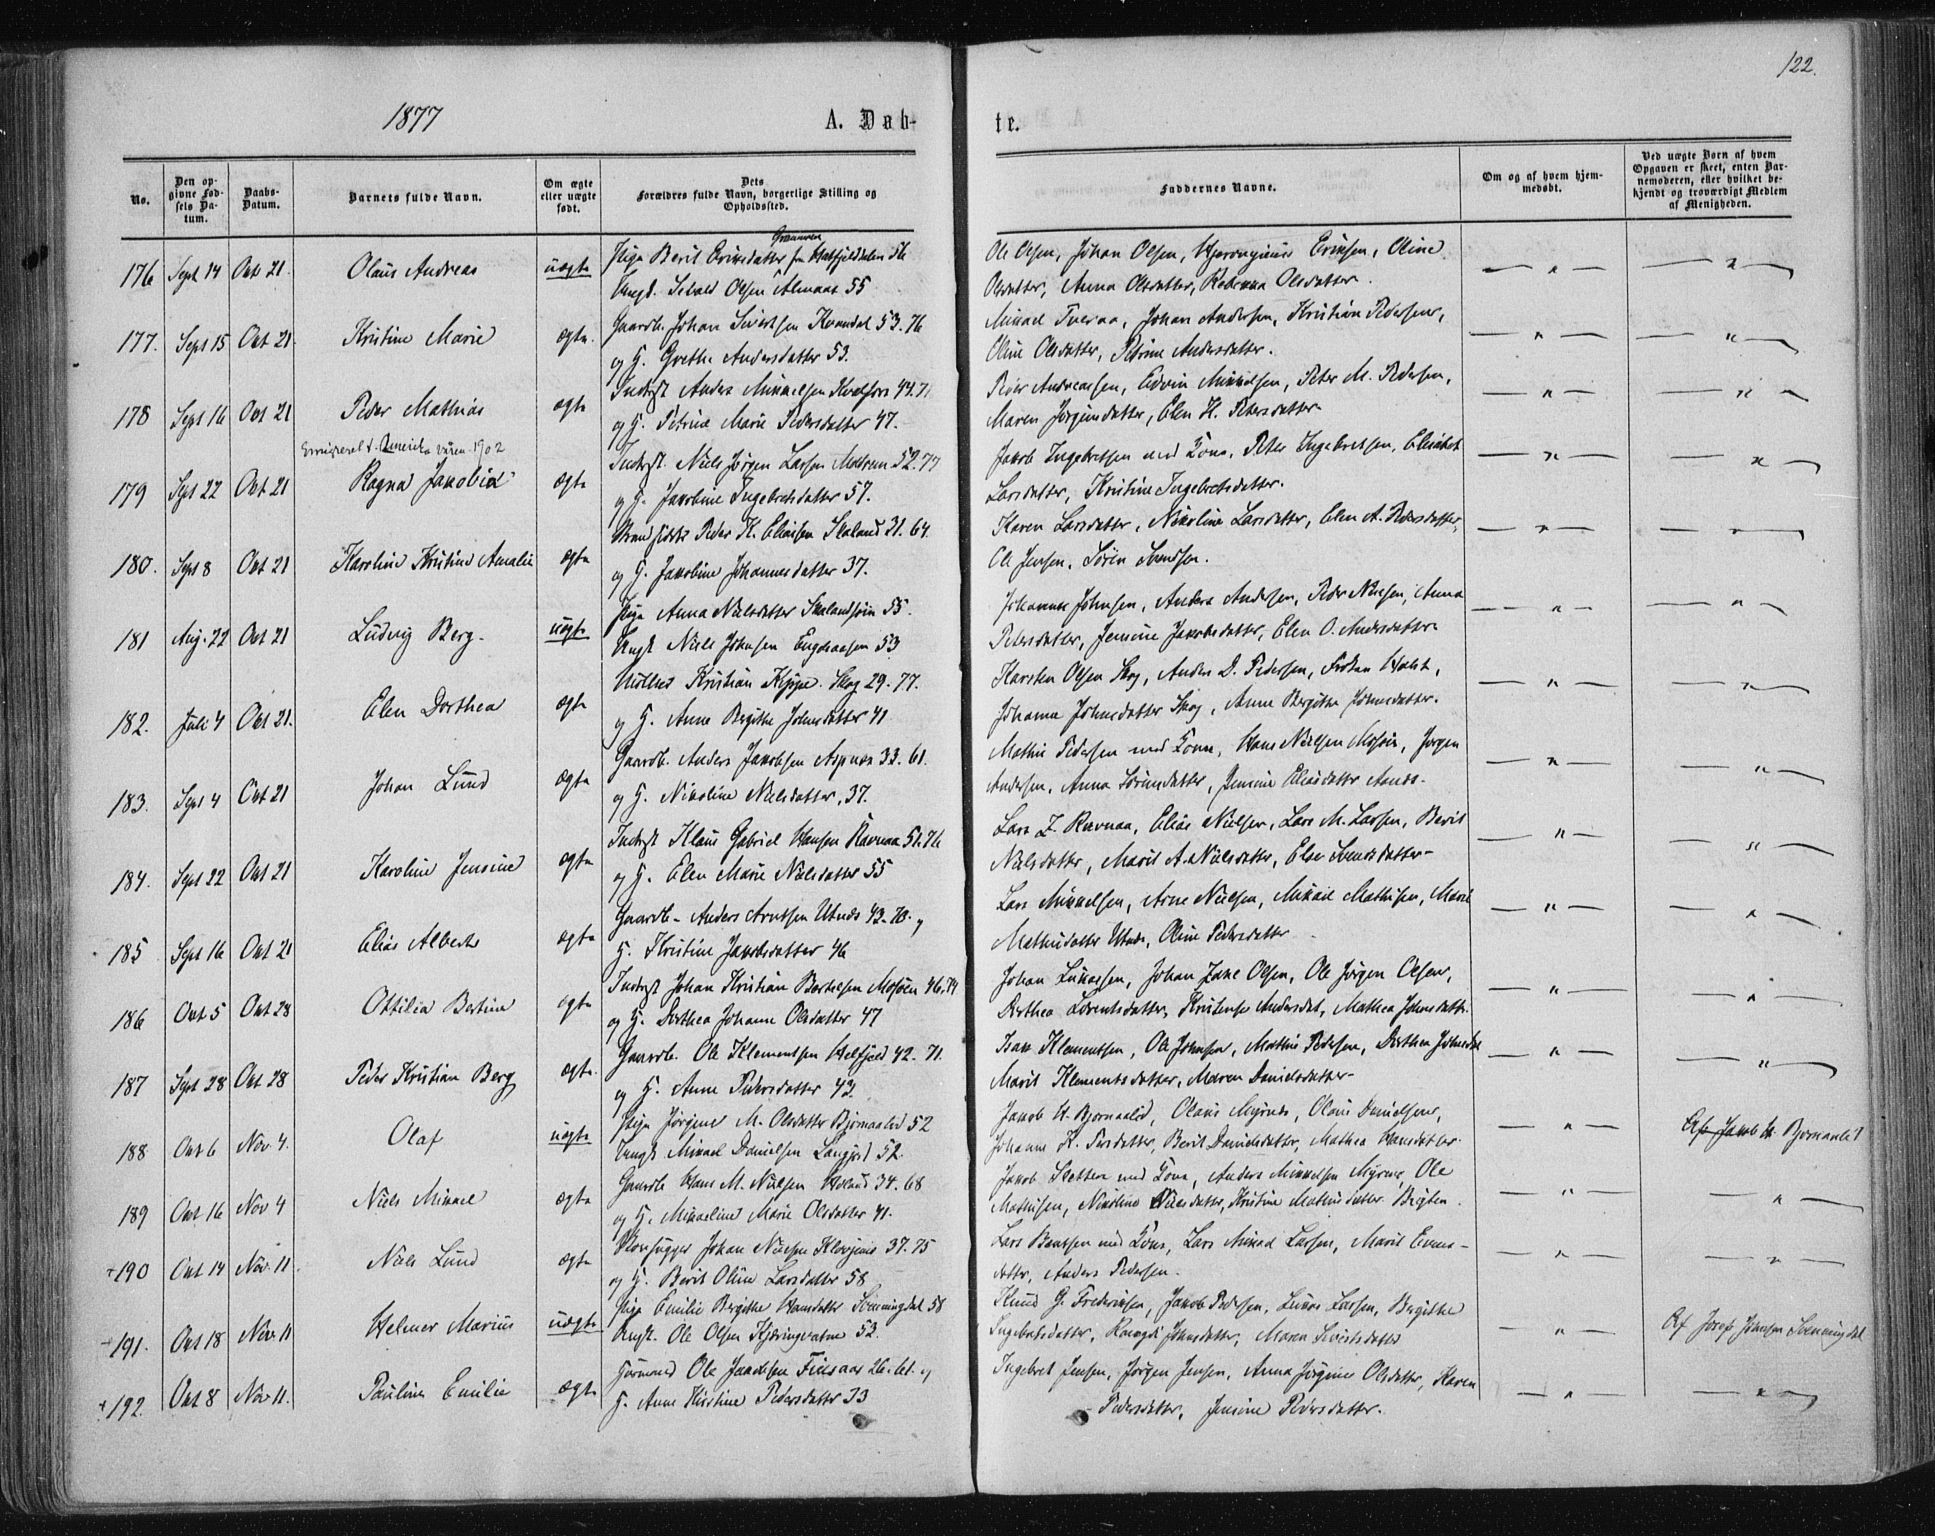 122.
1877
A. Døb-
te.
No.
Den op-
givne Fød-
sels Da-
tum.
Daabs-
Datum.
Barnets fulde Navn.
Om ægte
eller uægte
født.
Dets
Forældres fulde Navn, borgerlige Stilling og
Opholdssted.
Faddernes Navne.
Om og af hvem hjem-
medøbt.
Ved uægte Børn af hvem
Opgaven er skeet, enten Bar-
nemoderen, eller hvilket be-
kjendt og troværdigt Medlem
af Menigheden.
176 Sept 14 Okt 21. Olaus Andreas uægte
Pige Berit Eriksdatter fra Hatfjelddalen 56
Ungk. Olsen Almaas 55
Ole Olsen, Johan Olsen, Eriksen, Oline
Olsdatter, Anna Olsdatter, Olsdatter.
177. Sept 15 Okt 21. Kristine Marie ægte.
Gaardb. Johan Sivertsen Kvandal 53.76
og H. Grethe Andersdatter 53.
Mikael Tveraa, Johan Andersen, Kristian Pedersen,
Oline Olsdatter, Petrine Andersdatter.
178 Sept 16 Okt 21 Peder Mathias ægte
Inderst Anders Mikkelsen Kvalfors 44.71
og H. Petrine Marie Pedersdatter 47.
Peder Andreassen, Edvin Mikkelsen, Peter M. Pedersen,
Maren Jørgensdatter, Elen H. Petersdatter.
Emigreret t. Amerika våren 1902
179 Sept 22 Okt 21 Ragna Jakobea ægte
Inderst. Niels Jørgen Larsen 52.77
og H. Jakobine Ingebretsdatter 57.
Jakob Ingebretsen med Kone, Peter Ingebretsen, Elisabet
Larsdatter, Kristine Ingebretsdatter.
180. Sept 8 Okt 21 Karoline Kristine Amalie ægte
Peder K. Eliasen Skaland 31.64
og H. Jakobine Johannesdatter 37.
Karen Larsdatter, Nikoline Larsdatter, Elen A. Pedersdatter,
Ole Jensen, Søren Svendsen.
181 Aug. 22 Okt 21 Ludvig Berg. uægte
Pige Anna Nielsdatter 55.
Ungk Niels Johnsen Engesaasen 53
Johannes Johnsen, Anders Andersen, Peder Nielsen, Anna
Petersdatter, Jensine Jakobsdatter, Elen O. Andersdatter.
182. Juli 4 Okt 21. Elen Dorthea ægte
Kristian Skog 29.77.
og H. Anne Birgithe Johnsdatter 41
Karsten Olsen Skog, Anders D. Pedersen, Holst,
Johanna Johnsdatter Skog, Anne Bergithe Johnsdatter.
183. Sept 4 Okt 21 Johan Lund ægte
Gaardb. Anders Jakobsen Aspnes 33.61.
og H. Nikoline Nielsdatter, 37.
Mathis Pedersen med Kone, Hans Nielsen Mosjøen, Jørgen
Andersen, Anna Sørensdatter, Jensine Eliasdatter
184. Sept 22 Okt 21 Karoline Jensine ægte
Inderst Klaus Gabriel Hansen Ravnaa 51.76
og H. Elen Marie Nielsdatter 55
Lars Z. Ravnaa, Elias Nielsen, Lars M. Larsen, Berit
Nielsdatter, Marit A. Nielsdatter, Else Svendsdatter
185 Sept 16 Okt 21 Elias Alberts ægte
Gaardb. Anders Arntsen Utnes 43.70. og
H. Kristine Jakobsdatter 46
Lars Mikkelsen, Arne Nielsen, Mikael Mathisen, Marit
Mathisdatter Utnes, Oline Pedersdatter
186 Okt 5 Okt 28 Ottilia Bertine ægte
Inderst Johan Kristian Bertelsen Mosjøen 46.74
og H. Dorthea Johanne Olsdatter 47
Johan Lukassen, Johan Zakr Olsen, Ole Jørgen Olsen,
Dorthea Lorentsdatter, Kristense Andersdat, Mathea Johnsdatter
187 Sept 28 Okt 28 Peder Kristian Berg ægte.
Gaardb. Ole Klementsen Helfjeld 42.71.
og H. Anne Pedersdatter 43.
Isak Klementsen, Ole Johnsen, Mathis Pedersen, Dorthea Johnsdat
Marit Klementsdatter, Maren Danielsdatter
188 Okt 6 Nov 4. Olaf uægte
Pige Jørgine M. Olsdatter Bjørnaalid 52
Ungk Mikael Danielsen 52.
Jakob H. Bjørnaalid, Olaus Myrnes, Olaus Danielsen,
Johanne K. Persdatter, Berit Danielsdatter, Mathea Hansdatter.
Af Jakob H. Bjørnaalid
189 Okt 16 Nov 4 Niels Mikael ægte
Gaardb Hans M. Nielsen 34.68
og H. Mikaeline Marie Olsdatter 41.
Jakob Sletten med Kone, Anders Mikkelsen Myrnes, Ole
Mathisen, Nikoline Nielsdatter, Kristine Mathisdatter
+190 Okt 14 Nov. 11. Niels Lund ægte
Johan Nielsen 37.75
og H. Berit Oline Larsdatter 58
Lars Bentsen med Kone, Lars Mikael Larsen, Marit Evens-
datter, Anders Pedersen.
191. Okt 18 Nov. 11 Helmer Marius uægte
Pige Emilie Bergithe Hansdatter Svenningdal 58
Ungk. Ole Olsen Kjæringvatne 53.
Knud G. Fredriksen, Jakob Pedersen, Lukas Larsen, Birgithe
Ingebretsdatter, Johnsdatter, Maren Sivertsdatter
Af Josef Johnsen Svenningdal
+192. Okt 8 Nov. 11. Pauline Emilie ægte
Ole Jakobsen 26.61. og
H. Anne Kirstine Pedersdatter 33
Ingebret Jensen, Jørgen Jensen, Anna Jørgine Olsdatter, Karen
Pedersdatter, Jensine Pedersdatter.